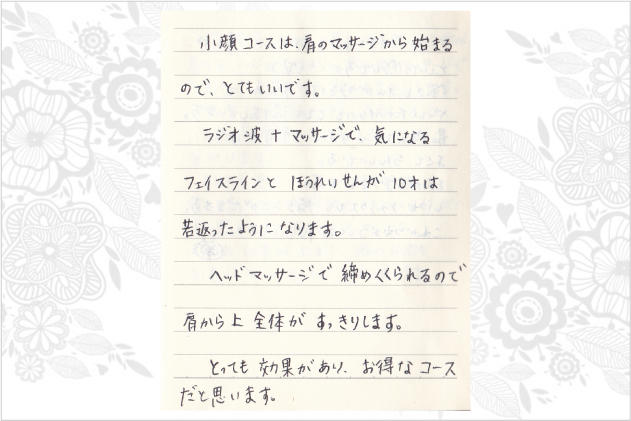 小顔コースは、肩のマッサージから始まる
ので、とてもいいです。
ラジオ波+マッサージで、気になる
フェイスラインと ほうれいせんが 10才は
若返ったようになります。
ヘッドマッサージで 締めくくられるので
肩から上 全体が すっきりします。
とっても 効果があり、お得なコース
だと思います。